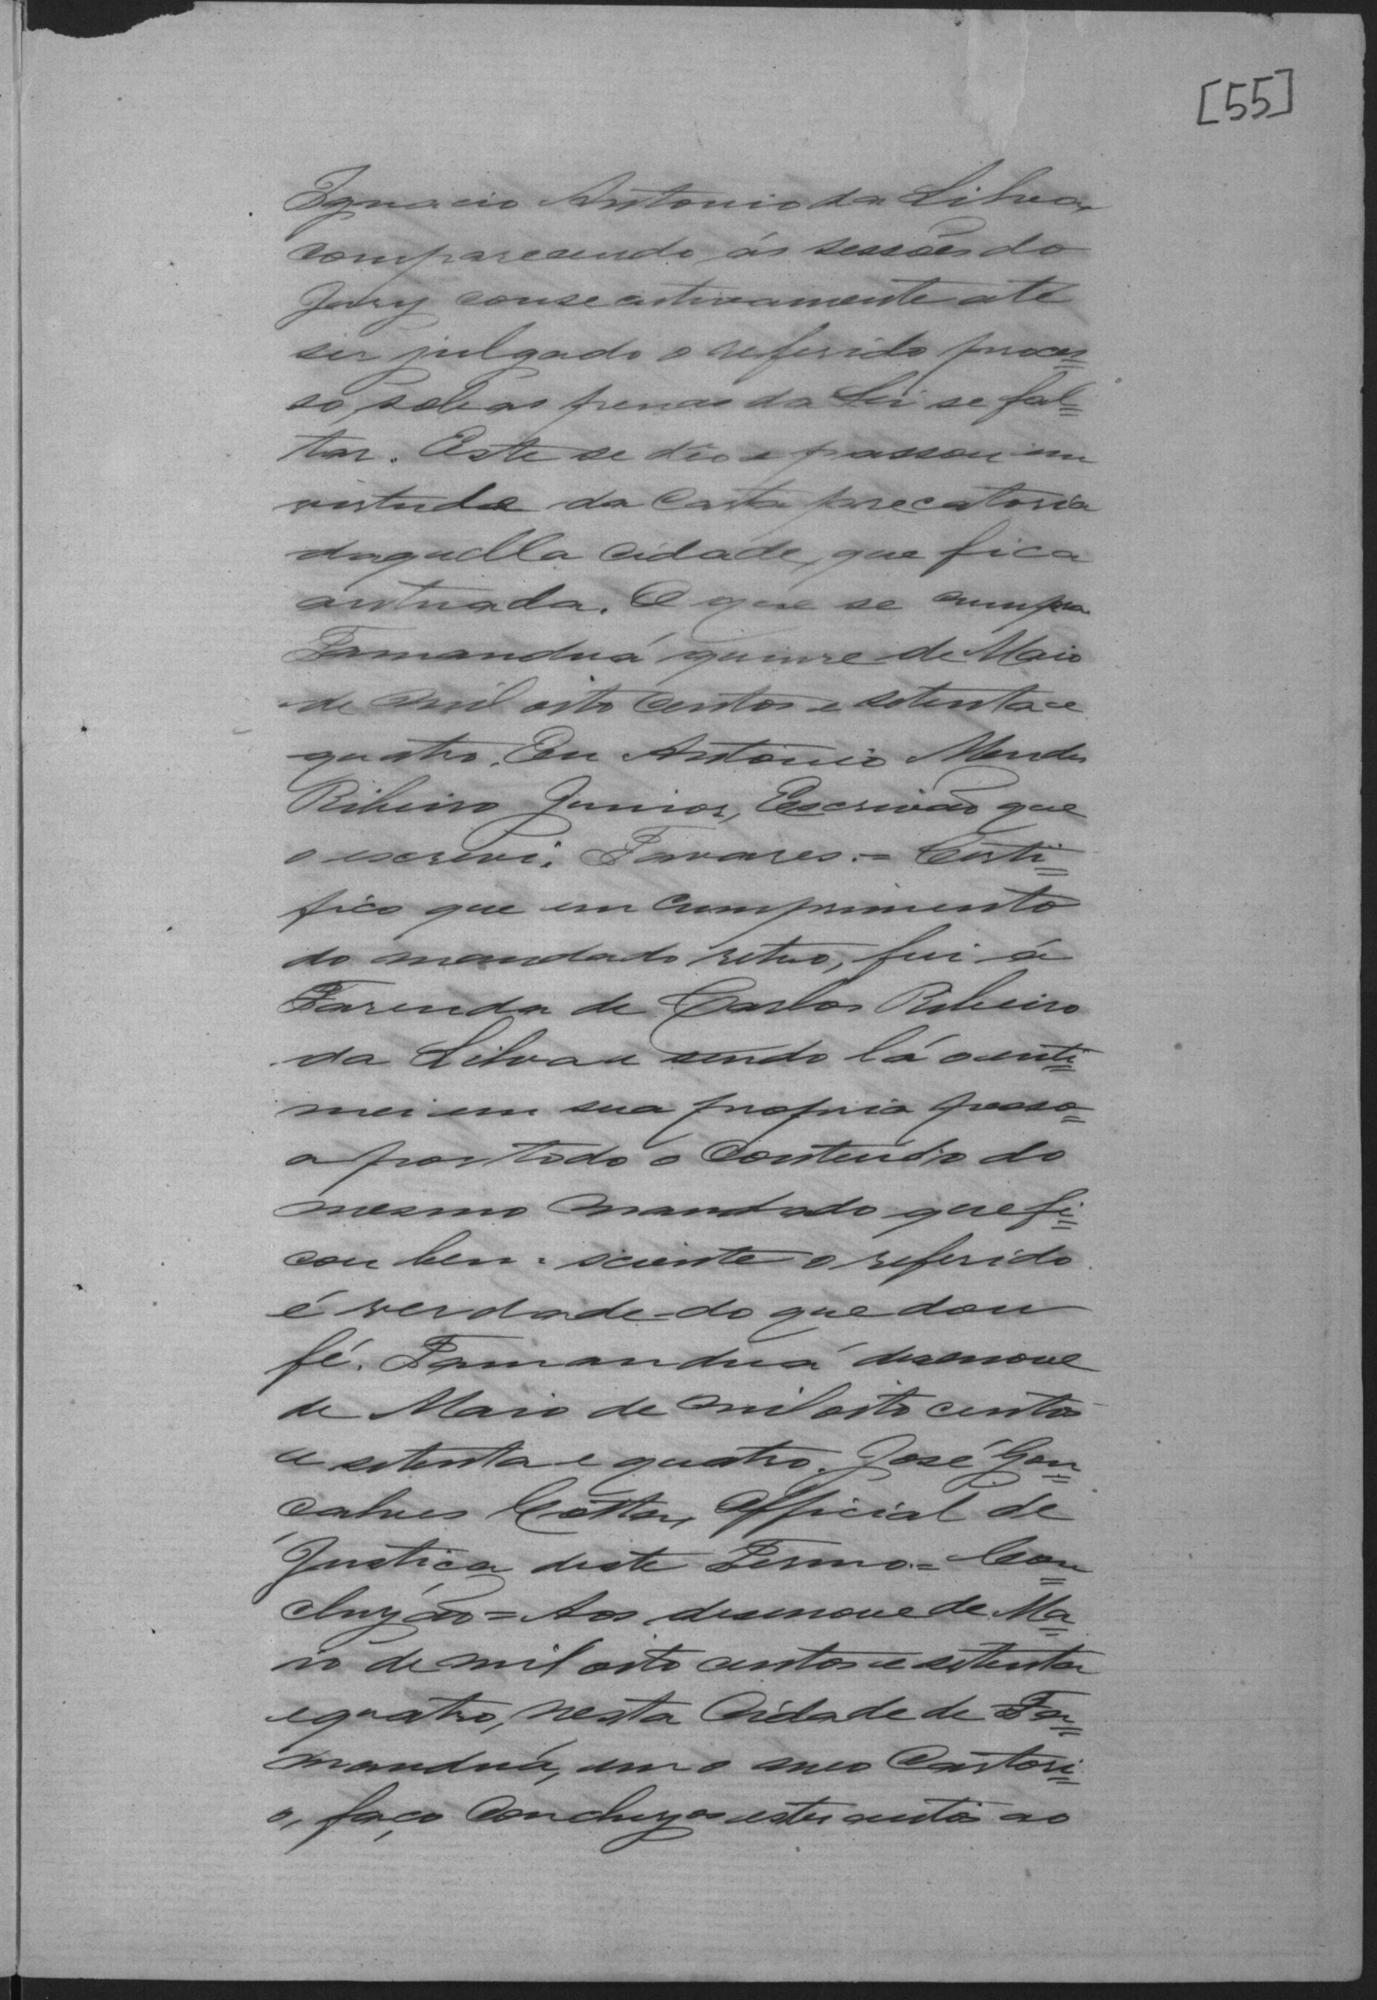 [55]
Ignacio Antonio da Silva,
comparecendo ás sessões do
Jury consecutivamente até
ser julgado o referido proces=
so, sob as penas da Lei se fal=
tar. Este se dêo e passou em
virtude da Carta precatoria
daquella cidade, que fica
autuada. O que se cumpra
Tamanduá quinze de Maio
de mil oito centos e setenta e
quatro. Eu Antonio Mendes
Ribeiro Junior, Escrivão que
o escrevi. Tavares. = Certi=
fico que em cumprimento
do mandado retro, fui á
Fazenda de Carlos Ribeiro
da Silva e sendo lá o inti=
mei em sua propria pesso=
a por todo o contendo do
mesmo mandado que fi=
cou bem sciente o referido
é verdade do que dou
fé. Tamanduá desenove
de Maio de mil oito centos
e setenta e quatro. José Gon=
calves Costa, Official de
Justiça deste Termo. = Con=
cluzão = Aos desenove de Ma=
io de mil oito centos e setenta
e quatro, nesta Cidade de Ta=
manduá, em o meo Cartori=
o, faço Concluzos estes autos ao